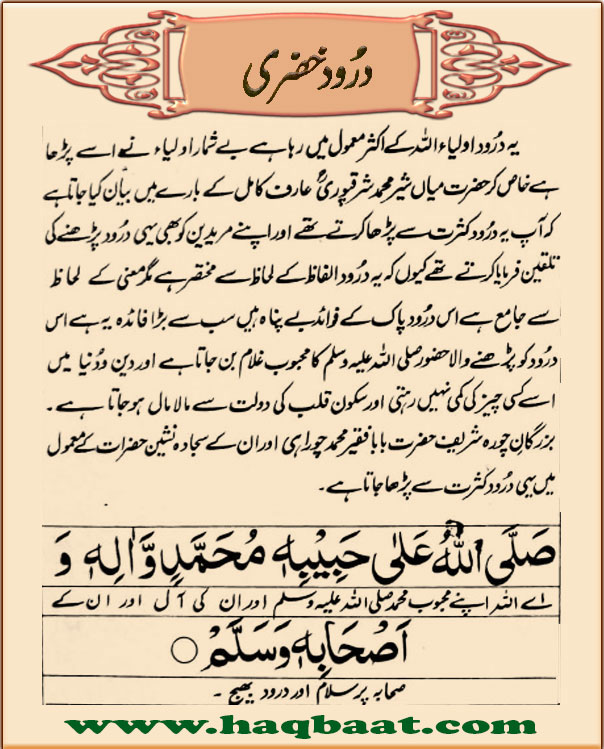 درُود خضری
یہ درُود اولیاء اللہ کے اکثر معمول میں رہا ہے بے شمار اولیاء نے اسے پڑھا
ہے خاص کر حضرت میاں شیر محمد شرقپوریؒ عارف کامل کے بارے میں بیان کیا جاتا ہے
کہ آپ یہ درُود کثرت سے پڑھا کرتے تھے اور اپنے مریدین کو بھی یہی درُود پڑھنے کی
تلقین فرمایا کرتے تھے کیوں کہ یہ درُود الفاظ کے لحاظ سے مختصر ہے مگر معنی کے لحاظ
سے جامع ہے اس درُود پاک کے فوائد بے پناہ ہیں سب سے بڑا فائدہ یہ ہے اس
درُود کو پڑھنے والا حضور صلی اللہ علیہ وسلم کا محبوب غلام بن جاتا ہے اور دین و دُنیا میں
اسے کسی چیز کی کمی نہیں رہتی اور سکون قلب کی دولت سے مالا مال ہو جاتا ہے۔
بزرگان چورہ شریف حضرت بابا فقیر محمد چوراہی اور ان کے سجادہ نشین حضرات کے معمول
میں یہی درُود کثرت سے پڑھا جاتا ہے۔
صَلَّی اللّٰہُ عَلٰی حَبِیْبِہٖ مُحَمَّدٍ وَّاٰلِہٖ وَ
اے اللہ اپنے محبوب محمد صلی اللہ علیہ وسلم اور ان کی آل اور ان کے
اَصْحَابِہٖ وَسَلَّمْ ○
صحابہ پر سلام اور درود بھیج ۔
www.haqbaat.com